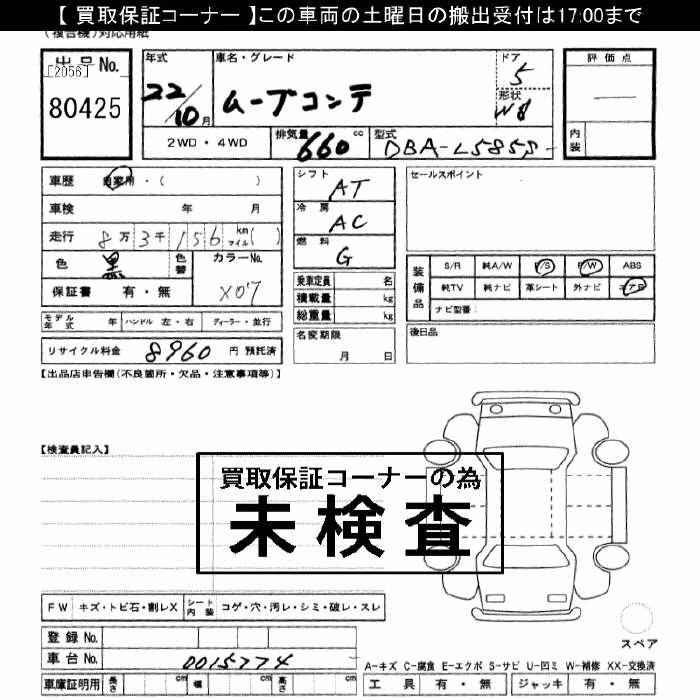 【 買取保証コーナー 】この車両の土曜日の搬出受付は17:00まで
(複合機)対応用紙
出品 No. [2056]
80425
年式 22/10月
車名・グレード ムーブコンテ
ドア 5
形状 WB
評価点 —
内装
2WD・4WD
排気量 660 cc
型式 DBA-L585S-
車歴 自家用・( )
車検 年 月
走行 8万3千156 km マイル( )
色 黒 色替 カラーNo.
X07
保証書 有・無
モデル年式 年 ハンドル 左・右 ディーラー・並行
リサイクル料金 8960 円 預託済
シフト AT
冷房 AC
燃料 G
乗車定員 名
積載量 kg
総重量 kg
名変期限
月 日
セールスポイント
装備品
S/R 純A/W P/S P/W ABS
純TV 純ナビ 革シート 外ナビ エアB
ナビ型番:
後日品
【出品店申告欄(不良箇所・欠品・注意事項等)】
【検査員記入】
買取保証コーナーの為
未検査
FW キズ・トビ石・割レX シート内装 コゲ・穴・汚レ・シミ・破レ・スレ
登録 No.
車台 No. 0015774
車庫証明用 長さ cm 幅 cm 高さ cm
スペア
A-キズ C-腐食 E-エクボ S-サビ U-凹ミ W-補修 XX-交換済
工具 有・無 ジャッキ 有・無